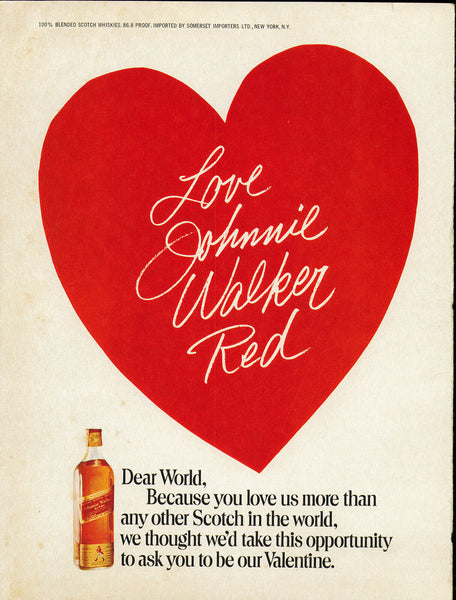 100% BLENDED SCOTCH WHISKIES. 86.8 PROOF. IMPORTED BY SOMERSET IMPORTERS LTD., NEW YORK, N.Y.
Love
Johnnie
Walker
Red
Dear World,
Because you love us more than
any other Scotch in the world,
we thought we'd take this opportunity
to ask you to be our Valentine.